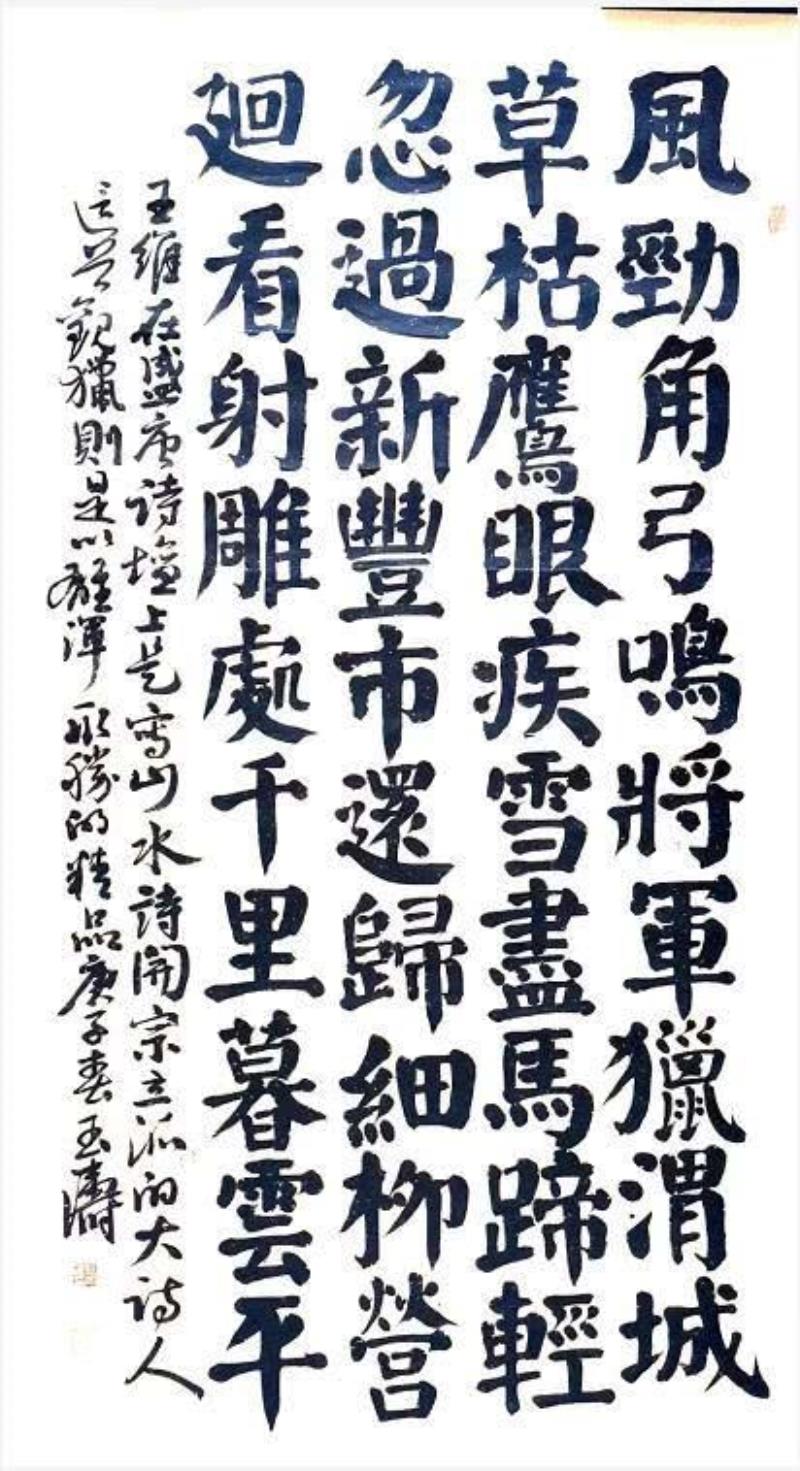 風勁角弓鳴將軍獵渭城
草枯鷹眼疾雪盡馬蹄輕
忽過新豐市還歸細柳營
廻看射雕處千里暮雲平
王維在盛唐诗壇上是寫山水詩開宗立派的大诗人
這首觀獵則是以雄渾取勝的精品庚子春玉濤